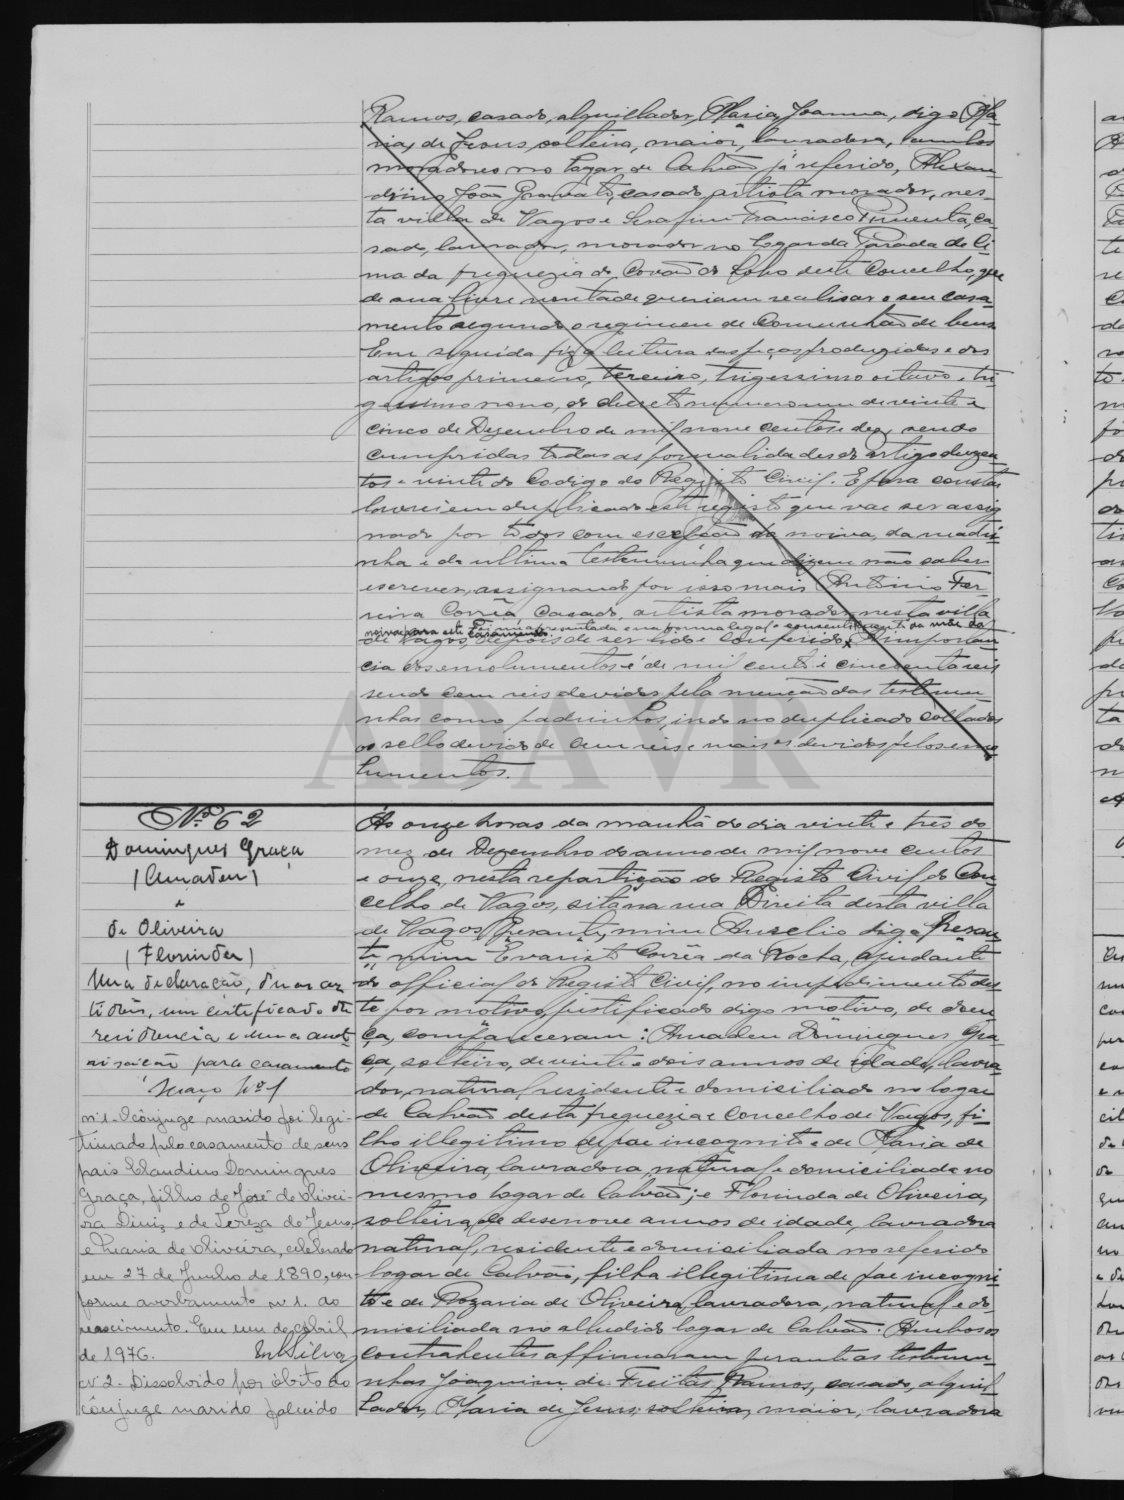 Ramos, casado, alquillador, Maria Joanna, digo Ma-
ria, de Jesus, solteira, maior, lavradora, ambos
moradores no logar de Calvão já referido, Alexan-
drino João Gravato, casado, artista morador, nes-
ta villa de Vagos e Serafim Francisco Pimenta, ca-
sado, lavrador, morador no logar da Parada de Ci-
ma da freguezia do Covão do Lobo deste Concelho, que
de sua livre vontade queriam realisar o seu casa-
mento segundo o regimen de Comunhão de bens.
Em seguida fiz a leitura das peças produzidas e dos
artigos primeiro, terceiro, trigessimo oitavo e tri-
gessimo nono, do decreto numero um de vinte e
cinco de Dezembro de mil nove centos e dez, sendo
cumpridas todas as formalidades do artigo duzen-
tos e vinte do Codigo do Registo Civil. E para constar
lavrei em duplicado este registo que vae ser assig-
nado por todos com escepção da noiva, da madri-
nha e da ultima testemunha que dizem não saber
escrever, assignando por isso mais Antonio Fer-
reira Corrêa, casado, artista morador nesta villa
noiva para este casamento Foi-me apresentada em forma legal o consentimento da mãe da
de Vagos, depois de ser lido e conferido. A importan-
cia dos emolumentos é de mil cento e cincoenta reis
sendo cem reis devidos pela menção das testemu-
nhas como padrinhos, indo no duplicado collados
os sellos devidos de cem reis e mais os devidos pelos emo-
lumentos.
Nº 62
Domingues Graça
(Amadeu)
e
de Oliveira
(Florinda)
Uma declaração, duas cer-
tidões, um certificado de
residencia e uma auto-
risação para casamento
Maço Nº 1
nº 1 - O cônjuge marido foi legi-
timado pelo casamento de seus
pais Claudino Domingues
Graça, filho de José de Olivei-
ra Diniz e de Tereza de Jesus,
e Maria de Oliveira, celebrado
em 27 de Junho de 1890, con-
forme averbamento nº 1. ao
nascimento. Em um de Abril
de 1976. Silva
nº 2 - Dissolvido por óbito do
cônjuge marido falecido
Ás onze horas da manhã do dia vinte e tres do
mez de Dezembro do anno de mil nove centos
e onze, nesta repartição do Registo Civil do Con-
celho de Vagos, sita na rua Direita desta villa
de Vagos Perante, mim Aurelio digo Peran-
te mim Evaristo Corrêa da Rocha, ajudante
do official do Registo Civil, no impedimento des-
te por motivo justificado digo motivo, de doen-
ça, compareceram: Amadeu Domingues Gra-
ça, solteiro, de vinte e dois annos de idade, lavra-
dor, natural, residente e domiciliado no logar
de Calvão desta freguezia e Concelho de Vagos, fi-
lho illegitimo de pae incognito e de Maria de
Oliveira, lavradora, natural e domiciliada no
mesmo logar de Calvão; e Florinda de Oliveira,
solteira, de desenove annos de idade, lavradora
natural, residente e domiciliada no referido
logar de Calvão, filha illegitima de pae incogni-
to e de Rozaria de Oliveira, lavradora, natural e do-
miciliada no alludido logar de Calvão. Ambos os
contrahentes affirmaram perante as testemu-
nhas Joaquim de Freitas Ramos, casado, alquil-
lador, Maria de Jesus, solteira, maior, lavradora
ADAVR